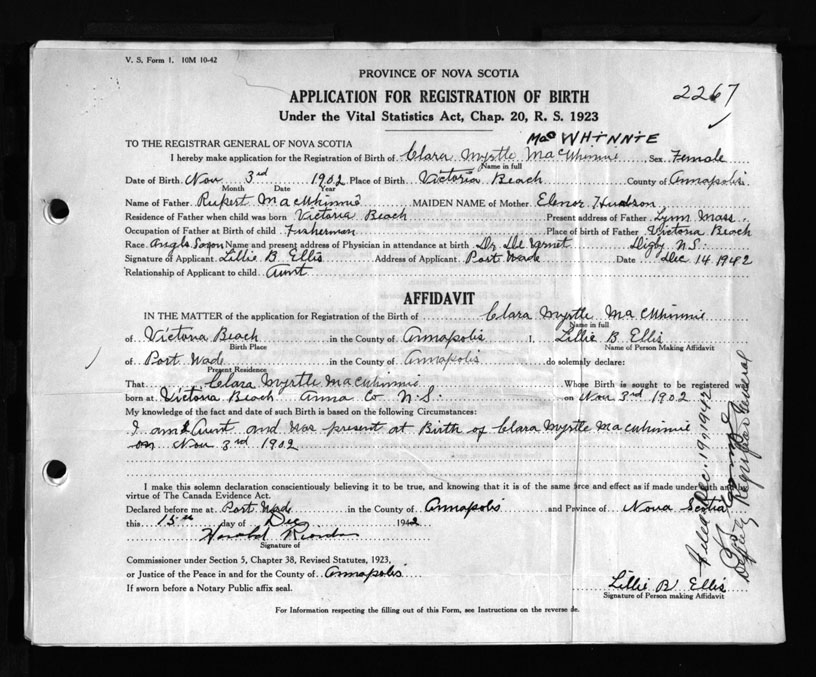 V. S. Form 1. 10M 10-42
PROVINCE OF NOVA SCOTIA
2267
APPLICATION FOR REGISTRATION OF BIRTH
Under the Vital Statistics Act, Chap. 20, R. S. 1923
Mac WHINNIE
TO THE REGISTRAR GENERAL OF NOVA SCOTIA
I hereby make application for the Registration of Birth of Clara Myrtle MacWhinnie Sex Female
Name in full
Date of Birth Nov 3rd 1902 Place of Birth Victoria Beach County of Annapolis
Month Date Year
Name of Father Rupert MacWhinnie MAIDEN NAME of Mother Elenor Hudson
Residence of Father when child was born Victoria Beach Present address of Father Lynn Mass.
Occupation of Father at Birth of child Fisherman Place of birth of Father Victoria Beach
Race Anglo Saxon Name and present address of Physician in attendance at birth Dr Digby N.S.
Signature of Applicant Lillie B Ellis Address of Applicant Port Wade Date Dec 14 1942
Relationship of Applicant to child Aunt
AFFIDAVIT
IN THE MATTER of the application for Registration of the Birth of Clara Myrtle MacWhinnie
Name in full
of Victoria Beach in the County of Annapolis I, Lillie B. Ellis
Birth Place Name of Person Making Affidavit
of Port Wade in the County of Annapolis do solemnly declare:
Present Residence
That Clara Myrtle MacWhinnie Whose Birth is sought to be registered was
born at Victoria Beach Anna Co N.S. on Nov 3rd 1902
My knowledge of the fact and date of such Birth is based on the following Circumstances:
I am Aunt and was present at Birth of Clara Myrtle MacWhinnie
on Nov 3rd 1902
I make this solemn declaration conscientiously believing it to be true, and knowing that it is of the same force and effect as if made under oath and
virtue of The Canada Evidence Act.
Declared before me at Port Wade in the County of Annapolis and Province of Nova Scotia
this 15th day of Dec 1942
Harold
Signature of
Commissioner under Section 5, Chapter 38, Revised Statutes, 1923,
or Justice of the Peace in and for the County of Annapolis
If sworn before a Notary Public affix seal.
Lillie B Ellis
Signature of Person making Affidavit
For Information respecting the filling out of this Form, see Instructions on the reverse side.
Filed Dec. 19, 1942
Deputy Registrar General